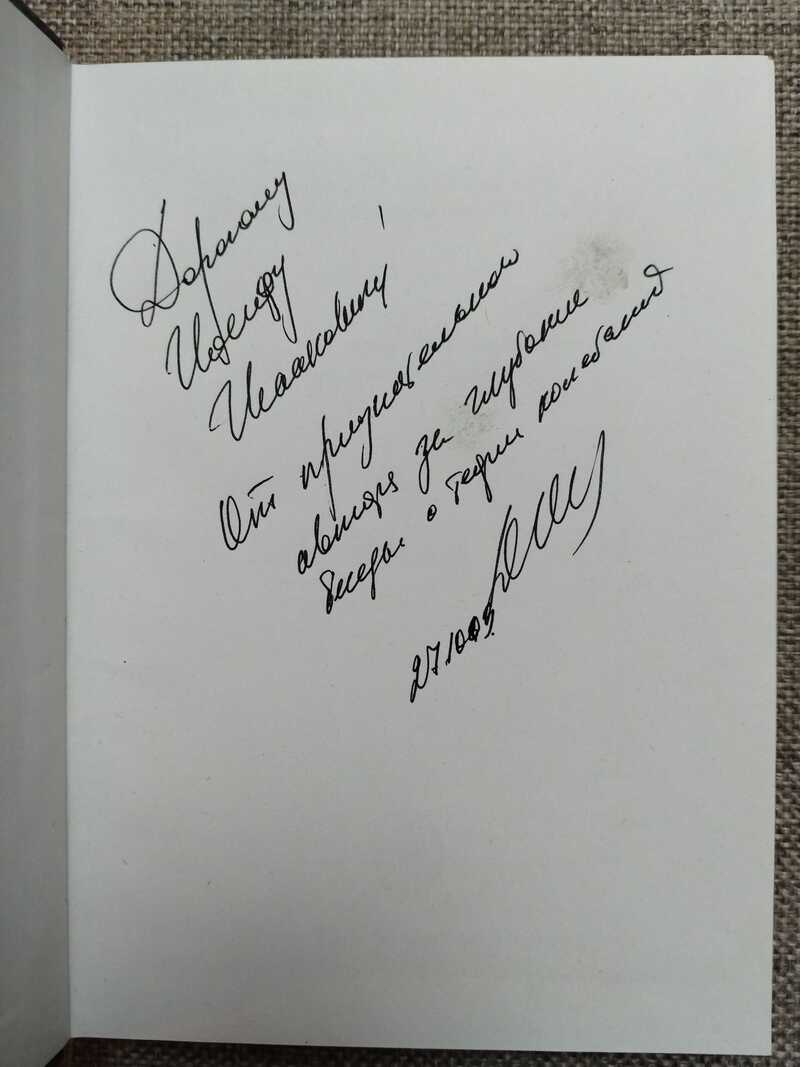 Дорогому
Исааковичу!
От признательного
автора за глубокие
беседы о теории колебаний
27.10.09.